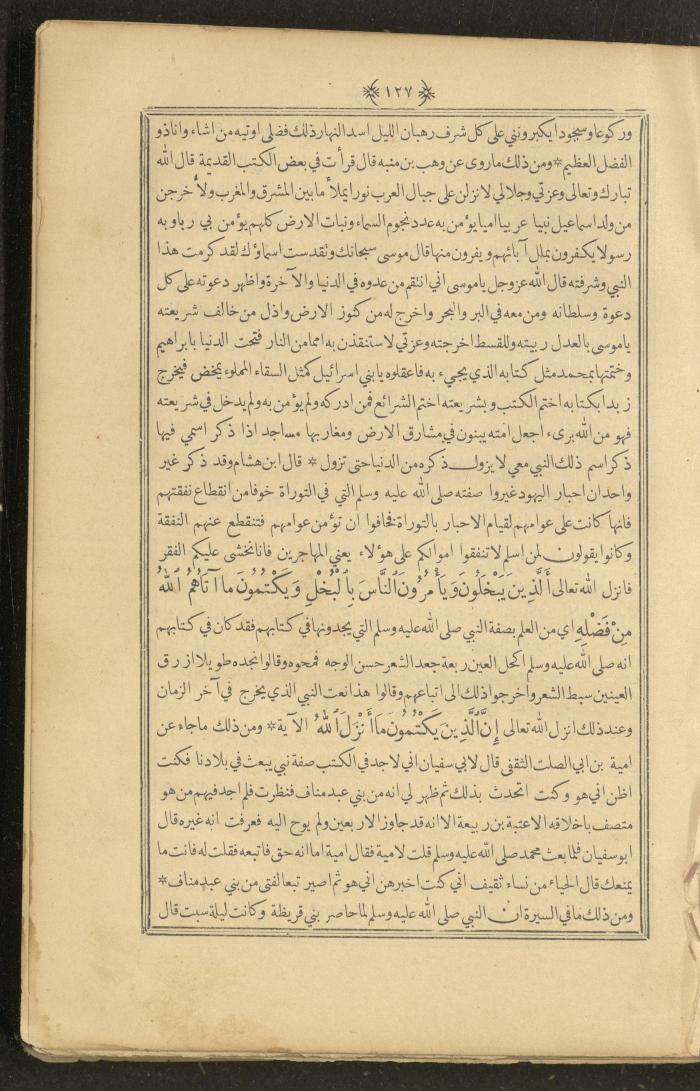 ١٢٧
وركوعا وسجودا يكبرونني على كل شرف رهبان الليل اسد النهار ذلك فضلي اوتيه من اشاء وانا ذو
الفضل العظيم * ومن ذلك ما روى عن وهب بن منبه قال قرأت في بعض الكتب القديمة قال الله
تبارك وتعالى وعزتي وجلالي لانزلن على جبال العرب نورا يملأ ما بين المشرق والمغرب ولأخرجن
من ولد اسماعيل نبيا عربيا اميا يؤمن به عدد نجوم السماء ونبات الارض كلهم يؤمن بي ربا وبه
رسولا يكفرون بملل آبائهم ويفرون منها قال موسى سبحانك وتقدست اسماؤك لقد كرمت هذا
النبي وشرفته قال الله عز وجل ياموسى اني انتقم من عدوه في الدنيا والآخرة واظهر دعوته على كل
دعوة وسلطانه ومن معه في البر والبحر واخرج له من كنوز الارض واذل من خالف شريعته
ياموسى بالعدل ربيته وللقسط اخرجته وعزتي لاستنقذن به امما من النار فتحت الدنيا بابراهيم
وختمتها بمحمد مثل كتابه الذي يجيء به فاعقلوه يا بني اسرائيل كمثل السقاء المملوء يمخض فيخرج
زبدا بكتابه اختم الكتب وبشريعته اختم الشرائع فمن ادركه ولم يؤمن به ولم يدخل في شريعته
فهو من الله بريء اجعل امته يبنون في مشارق الارض ومغاربها مساجد اذا ذكر اسمي فيها
ذكر اسم ذلك النبي معي لا يزول ذكره من الدنيا حتى تزول * قال ابن هشام وقد ذكر غير
واحد ان احبار اليهود غيروا صفته صلى الله عليه وسلم التي في التوراة خوفا من انقطاع نفقتهم
فانها كانت على عوامهم لقيام الاحبار بالتوراة فخافوا ان تؤمن عوامهم فتنقطع عنهم النفقة
وكانوا يقولون لمن اسلم لا تنفقوا اموالكم على هؤلاء يعني المهاجرين فانا نخشى عليكم الفقر
فانزل الله تعالى اَلَّذِينَ يَبْخَلُونَ وَيَأْمُرُونَ اَلنَّاسَ بِالْبُخْلِ وَيَكْتُمُونَ مَا آتَاهُمُ اَللهُ
مِنْ فَضْلِهِ اي من العلم بصفة النبي صلى الله عليه وسلم التي يجدونها في كتابهم فقد كان في كتابهم
انه صلى الله عليه وسلم اكحل العين ربعة جعد الشعر حسن الوجه فمحوه وقالوا نجده طويلا ازرق
العينين سبط الشعر واخرجوا ذلك الى اتباعهم وقالوا هذا نعت النبي الذي يخرج في آخر الزمان
وعند ذلك انزل الله تعالى إِنَّ اَلَّذِينَ يَكْتُمُونَ مَا أَنْزَلَ اَللهُ الآية * ومن ذلك ما جاء عن
امية بن ابي الصلت الثقفي قال لابي سفيان اني لاجد في الكتب صفة نبي يبعث في بلادنا فكنت
اظن اني هو وكنت اتحدث بذلك ثم ظهر لي انه من بني عبد مناف فنظرت فلم اجد فيهم من هو
متصف باخلاقه الا عتبة بن ربيعة الا انه قد جاوز الاربعين ولم يوح اليه فعرفت انه غيره قال
ابو سفيان فلما بعث محمد صلى الله عليه وسلم قلت لامية فقال امية اما انه حق فاتبعه فقلت له فانت ما
يمنعك قال الحياء من نساء ثقيف اني كنت اخبرهن اني هو ثم اصير تبعا لفتى من بني عبد مناف *
ومن ذلك ما في السيرة ان النبي صلى الله عليه وسلم لما حاصر بني قريظة وكانت ليلة سبت قال